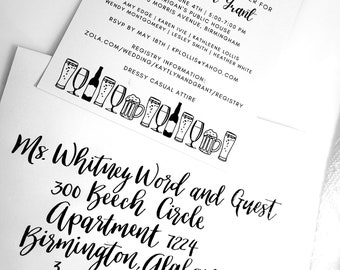 Grant
FOR
JUNE 4 | 5:00-7:00 PM
PUBLIC HOUSE
MORRIS AVENUE, BIRMINGHAM
AMY EDGE | KAREN IVIE | KATHLEENE LOLLIS
WENDY MONTGOMERY | LESLEY SMITH | HEATHER WHITE
RSVP BY MAY 18TH | KPLOLLIS@YAHOO.COM
REGISTRY INFORMATION:
ZOLA.COM/WEDDING/KAYLYNANDGRANT/REGISTRY
DRESSY CASUAL ATTIRE
Ms. Whitney Word and Guest
300 Beech Circle
Apartment 7224
Birmington, Alaba
3